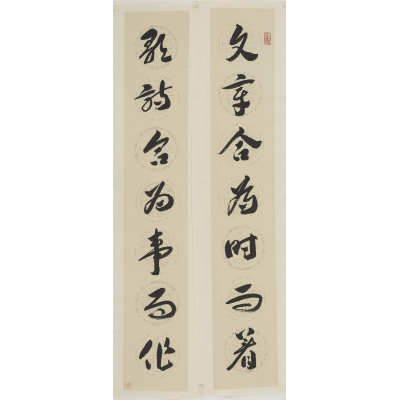 文章合為时而著
歌詩合为事而作